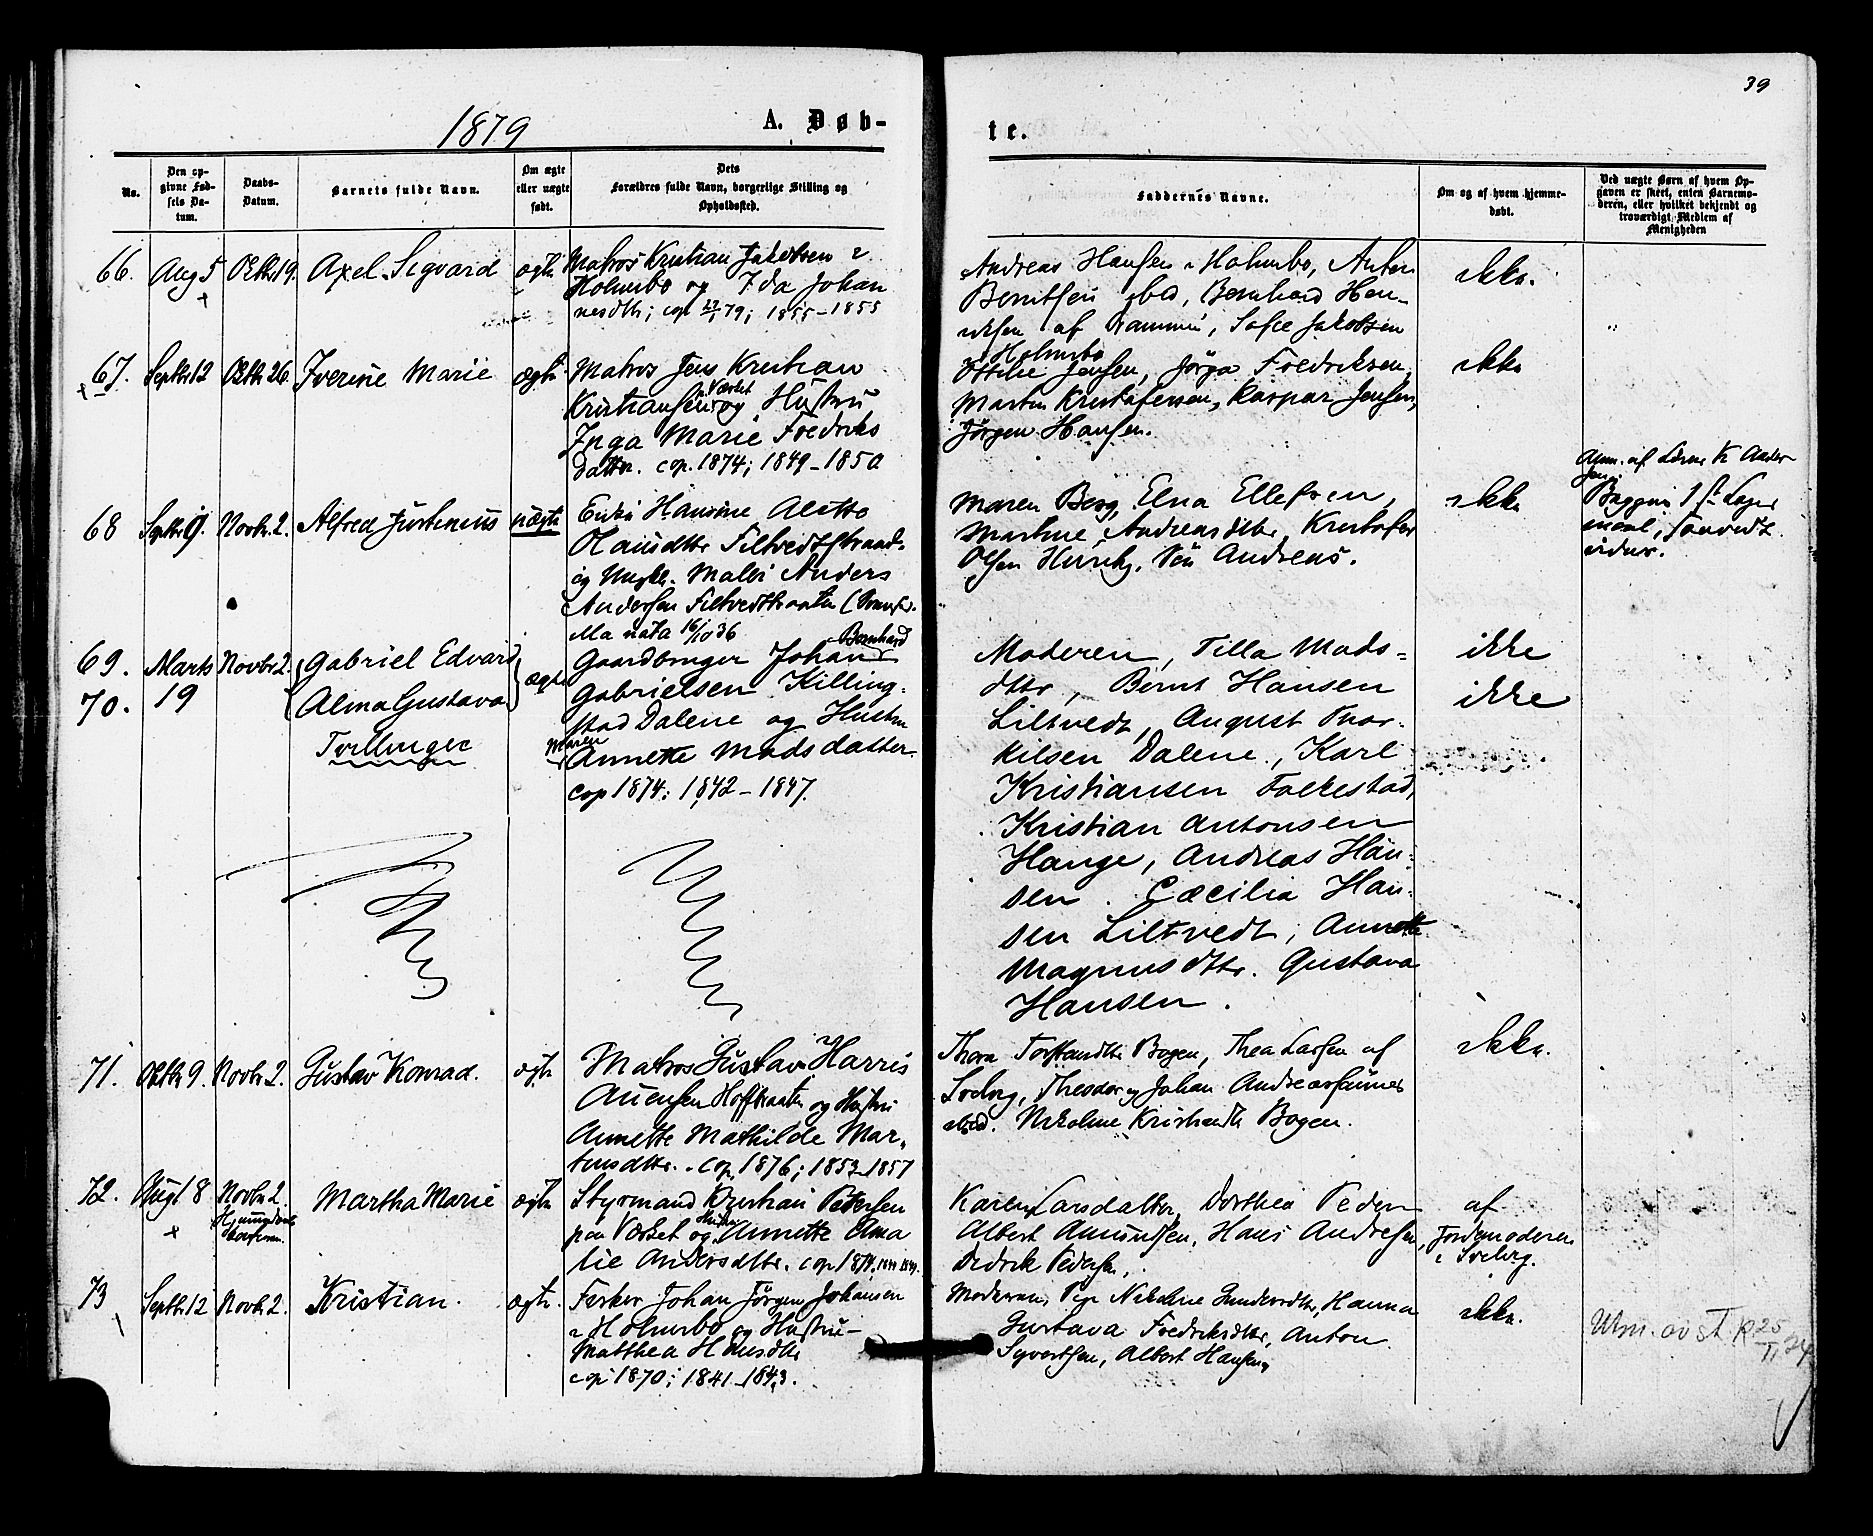 39
1879
A. Døb-
te.
No.
Den op-
givne Fød-
sels Da-
tum.
Daabs-
Datum.
Barnets fulde Navn.
Om ægte
eller uægte
født.
Dets
Forældres fulde Navn, borgerlige Stilling og
Opholdssted.
Faddernes Navne.
Om og af hvem hjemme-
døbt.
Ved uægte Børn af hvem Op-
gaven er skeet, enten Barnemo-
deren, eller hvilket bekjendt og
troværdigt Medlem af
Menigheden
66. Aug 5 Oktb. 19. Axel Sigvard ægte
Matros Kristian Jakobsen i
Holmsbo og Ida Johan
nesdtr; cop 79; 1855-1855
Andreas Hansen i Holmsbo, Anton
Berntsen ibid, Bernhard Hen-
riksen af Drammen, Sofie Jakobsen
Holmsbo
ikke.
67. Septb. 12 Oktb. 26. Iverine Marie ægte
Matros Jens Kristian
Kristiansen Værket og Hustru
Inga Marie Fredriks
datter. cop. 1874; 1849-1850
Ottilie Jensen, Jørga Fredriksen,
Martin Kristofersen, Kaspar Jensen,
Jørgen Hansen.
ikke
68 Septb. 9. Novbr. 2. Alfred Justinius uægte
Enke Hansine Alette
Olausdtr Filtvedtstrand
og Ungk. Maler Anders
Andersen Filtvedtstranden
Ma nata 16/10 36
Maren Berg, Elna Ellefsen,
Martine Andreasdtr, Kristofer
Olsen Andreas.
ikke
Anm. af Lærer K Ander
sen
1ste Leger
maal, saavidt
vides.
69. Marts Novbr. 2. Gabriel Edvard
70. 19 Alma Gustava ægte
Tvillinger
Gaardbruger Johan Bernhard
Gabrielsen Killing-
stad Dalene og Hustru
Maren
Annette Madsdatter
cop 1874; 1842-1847.
Moderen, Tilla Mads-
dtr, Bernt Hansen
Liltvedt, August Thor-
kilsen Dalene, Karl
Kristiansen Folkestad,
Kristian Antonsen
Hauge, Andreas Han-
sen. Cæcilia Han-
sen Liltvedt, Annette
Magnusdtr. Gustava
Hansen.
ikke
ikke
71. Oktb. 9. Novbr. 2. Gustav Konrad. ægte
Matros Gustav Harris
Auensen og Hustru
Annette Mathilde Mar-
tinsdtr. cop. 1876; 1853-1857
Thora Bogen, Thea Larsen af
Svelvig, Theodor og Johan
ibid. Nikoline Kristiansdtr Bogen.
ikke.
72. Augt 8 Novbr. 2. Martha Marie ægte
Styrmand Kristian Petersen
paa Værket og Hustru Annette Ama
lie Andersdtr. cop. 1874,
Karen Larsdatter, Dorthea Peder
Albert Amundsen, Hans Andresen,
Didrik Pedersen.
af
Jordemoderen
i Svelvig.
73 Septb. 12 Novbr. 2. Kristian. ægte
Fisker Johan Jørgen Johansen
i Holmsbo og Hustru
Matthea Hansdtr
cop 1870; 1841-1843.
Moderen, Pige Nikoline Gundersdtr, Hanna
Gustava Fredriksdtr, Anton
Syvertsen, Albert Hansen,
ikke.
Utm. av st. K 25/11 34